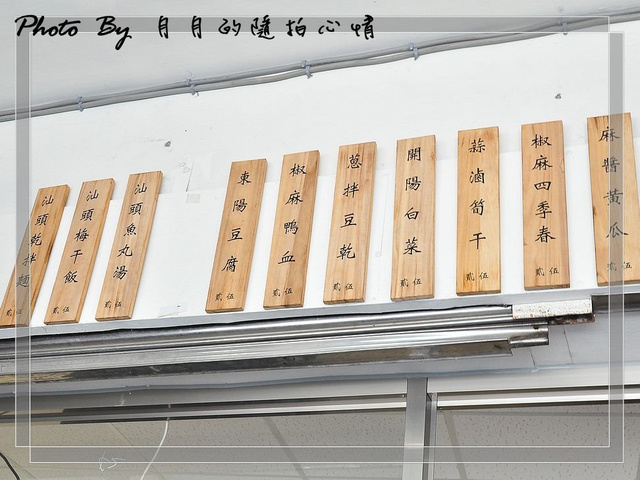 Photo By 月月的隨拍心情
汕頭乾拌麵
貳伍
汕頭梅干飯
貳伍
汕頭魚丸湯
貳伍
東陽豆腐
貳伍
椒麻鴨血
貳伍
蔥拌豆乾
貳伍
開陽白菜
貳伍
蒜滷筍干
貳伍
椒麻四季春
貳伍
麻醬黃瓜
貳伍